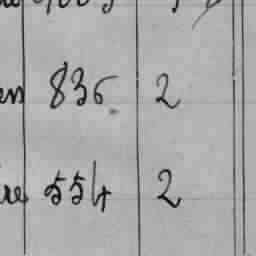 en 836. 2
re 554 2